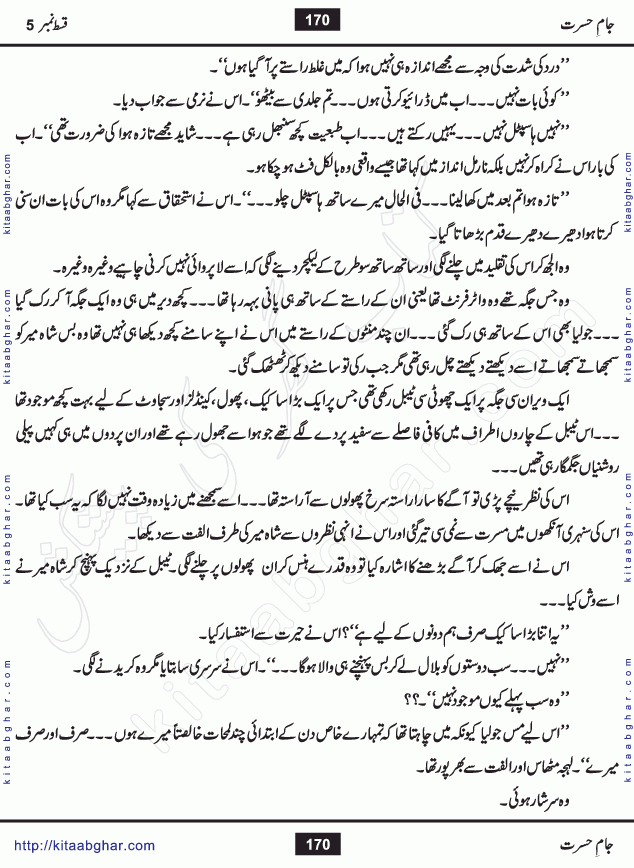 جامِ حسرت
170
قسط نمبر 5
’’درد کی شدت کی وجہ سے مجھے اندازہ ہی نہیں ہوا کہ میں غلط راستے پر آ گیا ہوں‘‘۔
’’کوئی بات نہیں۔۔۔اب میں ڈرائیو کرتی ہوں۔۔۔تم جلدی سے بیٹھو‘‘۔ اس نے نرمی سے جواب دیا۔
’’نہیں ہاسپٹل نہیں۔۔۔یہیں رکتے ہیں۔۔۔اب طبیعت کچھ سنبھل رہی ہے۔۔۔شاید مجھے تازہ ہوا کی ضرورت تھی‘‘۔ اب
کی بار اس نے کراہ کر نہیں بلکہ نارمل انداز میں کہا تھا جیسے واقعی وہ بالکل فٹ ہو چکا ہو۔
’’تازہ ہوا تم بعد میں کھا لینا۔۔۔فی الحال میرے ساتھ ہاسپٹل چلو۔۔۔‘‘۔ اس نے استحقاق سے کہا مگر وہ اس کی بات ان سنی
کرتا ہوا دھیرے دھیرے قدم بڑھاتا گیا۔
وہ الجھ کر اس کی تقلید میں چلنے لگی اور ساتھ ساتھ سو طرح کے لیکچر دینے لگی کہ اسے لاپروائی نہیں کرنی چاہیے وغیرہ وغیرہ۔
وہ جس جگہ تھے وہ واٹر فرنٹ تھا یعنی ان کے راستے کے ساتھ ہی پانی بہہ رہا تھا۔۔۔کچھ دیر میں ہی وہ ایک جگہ آ کر رک گیا
۔۔۔جولیا بھی اس کے ساتھ ہی رک گئی۔۔۔ان چند منٹوں کے راستے میں اس نے اپنے سامنے کچھ دیکھا ہی نہیں تھا وہ بس شاہ میر کو
سمجھاتے سمجھاتے اسے دیکھتے دیکھتے چل رہی تھی مگر جب رکی تو سامنے دیکھ کر ٹھٹھک گئی۔
ایک ویران سی جگہ پر ایک چھوٹی سی ٹیبل رکھی تھی جس پر ایک بڑا سا کیک، پھول، کینڈلز اور سجاوٹ کے لیے بہت کچھ موجود تھا
۔۔۔اس ٹیبل کے چاروں اطراف میں کافی فاصلے سے سفید پردے لگے تھے جو ہوا سے جھول رہے تھے اور ان پردوں میں ہی کہیں پیلی
روشنیاں جگمگا رہی تھیں۔۔۔
اس کی نظر نیچے پڑی تو آگے کا سارا راستہ سرخ پھولوں سے آراستہ تھا۔۔۔اسے سمجھنے میں زیادہ وقت نہیں لگا کہ یہ سب کیا تھا۔
اس کی سنہری آنکھوں میں مسرت سے نمی سی تیر گئی اور اس نے انہی نظروں سے شاہ میر کی طرف الفت سے دیکھا۔
اس نے اسے جھک کر آگے بڑھنے کا اشارہ کیا تو وہ قدرے ہنس کر ان پھولوں پر چلنے لگی۔ ٹیبل کے نزدیک پہنچ کر شاہ میر نے
اسے وش کیا۔۔۔
’’یہ اتنا بڑا سا کیک صرف ہم دونوں کے لیے ہے‘‘؟ اس نے حیرت سے استفسار کیا۔
’’نہیں۔۔۔سب دوستوں کو بلال لے کر بس پہنچنے ہی والا ہو گا۔۔۔‘‘۔ اس نے سرسری سا بتایا مگر وہ کریدنے لگی۔
’’وہ سب پہلے کیوں موجود نہیں‘‘۔؟؟
’’اس لیے مس جولیا کیونکہ میں چاہتا تھا کہ تمہارے خاص دن کے ابتدائی چند لمحات خالصتاً میرے ہوں۔۔۔صرف اور صرف
میرے‘‘۔ لہجہ مٹھاس اور الفت سے بھرپور تھا۔
وہ سرشار ہوئی۔
kitaabghar.com
kitaabghar.com
kitaabghar.com
kitaabghar.com
kitaabghar.com
kitaabghar.com
kitaabghar.com
kitaabghar.com
کتاب گھر کی پیشکش
kitaabghar.com
جامِ حسرت
170
http://kitaabghar.com